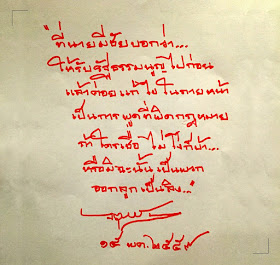 "ที่นายมีชัยบอกว่า...
ให้รับรัฐธรรมนูญไปก่อน
แล้วค่อยแก้ไขในภายหน้า
เป็นการพูดที่ผิดกฎหมาย
ถ้าใครเชื่อ ไม่โง่ก็บ้า...
หรือมิฉะนั้นเป็นพวก
ออกลูกเป็นลิง..."
๑๕ พ.ค. ๒๕๕๙